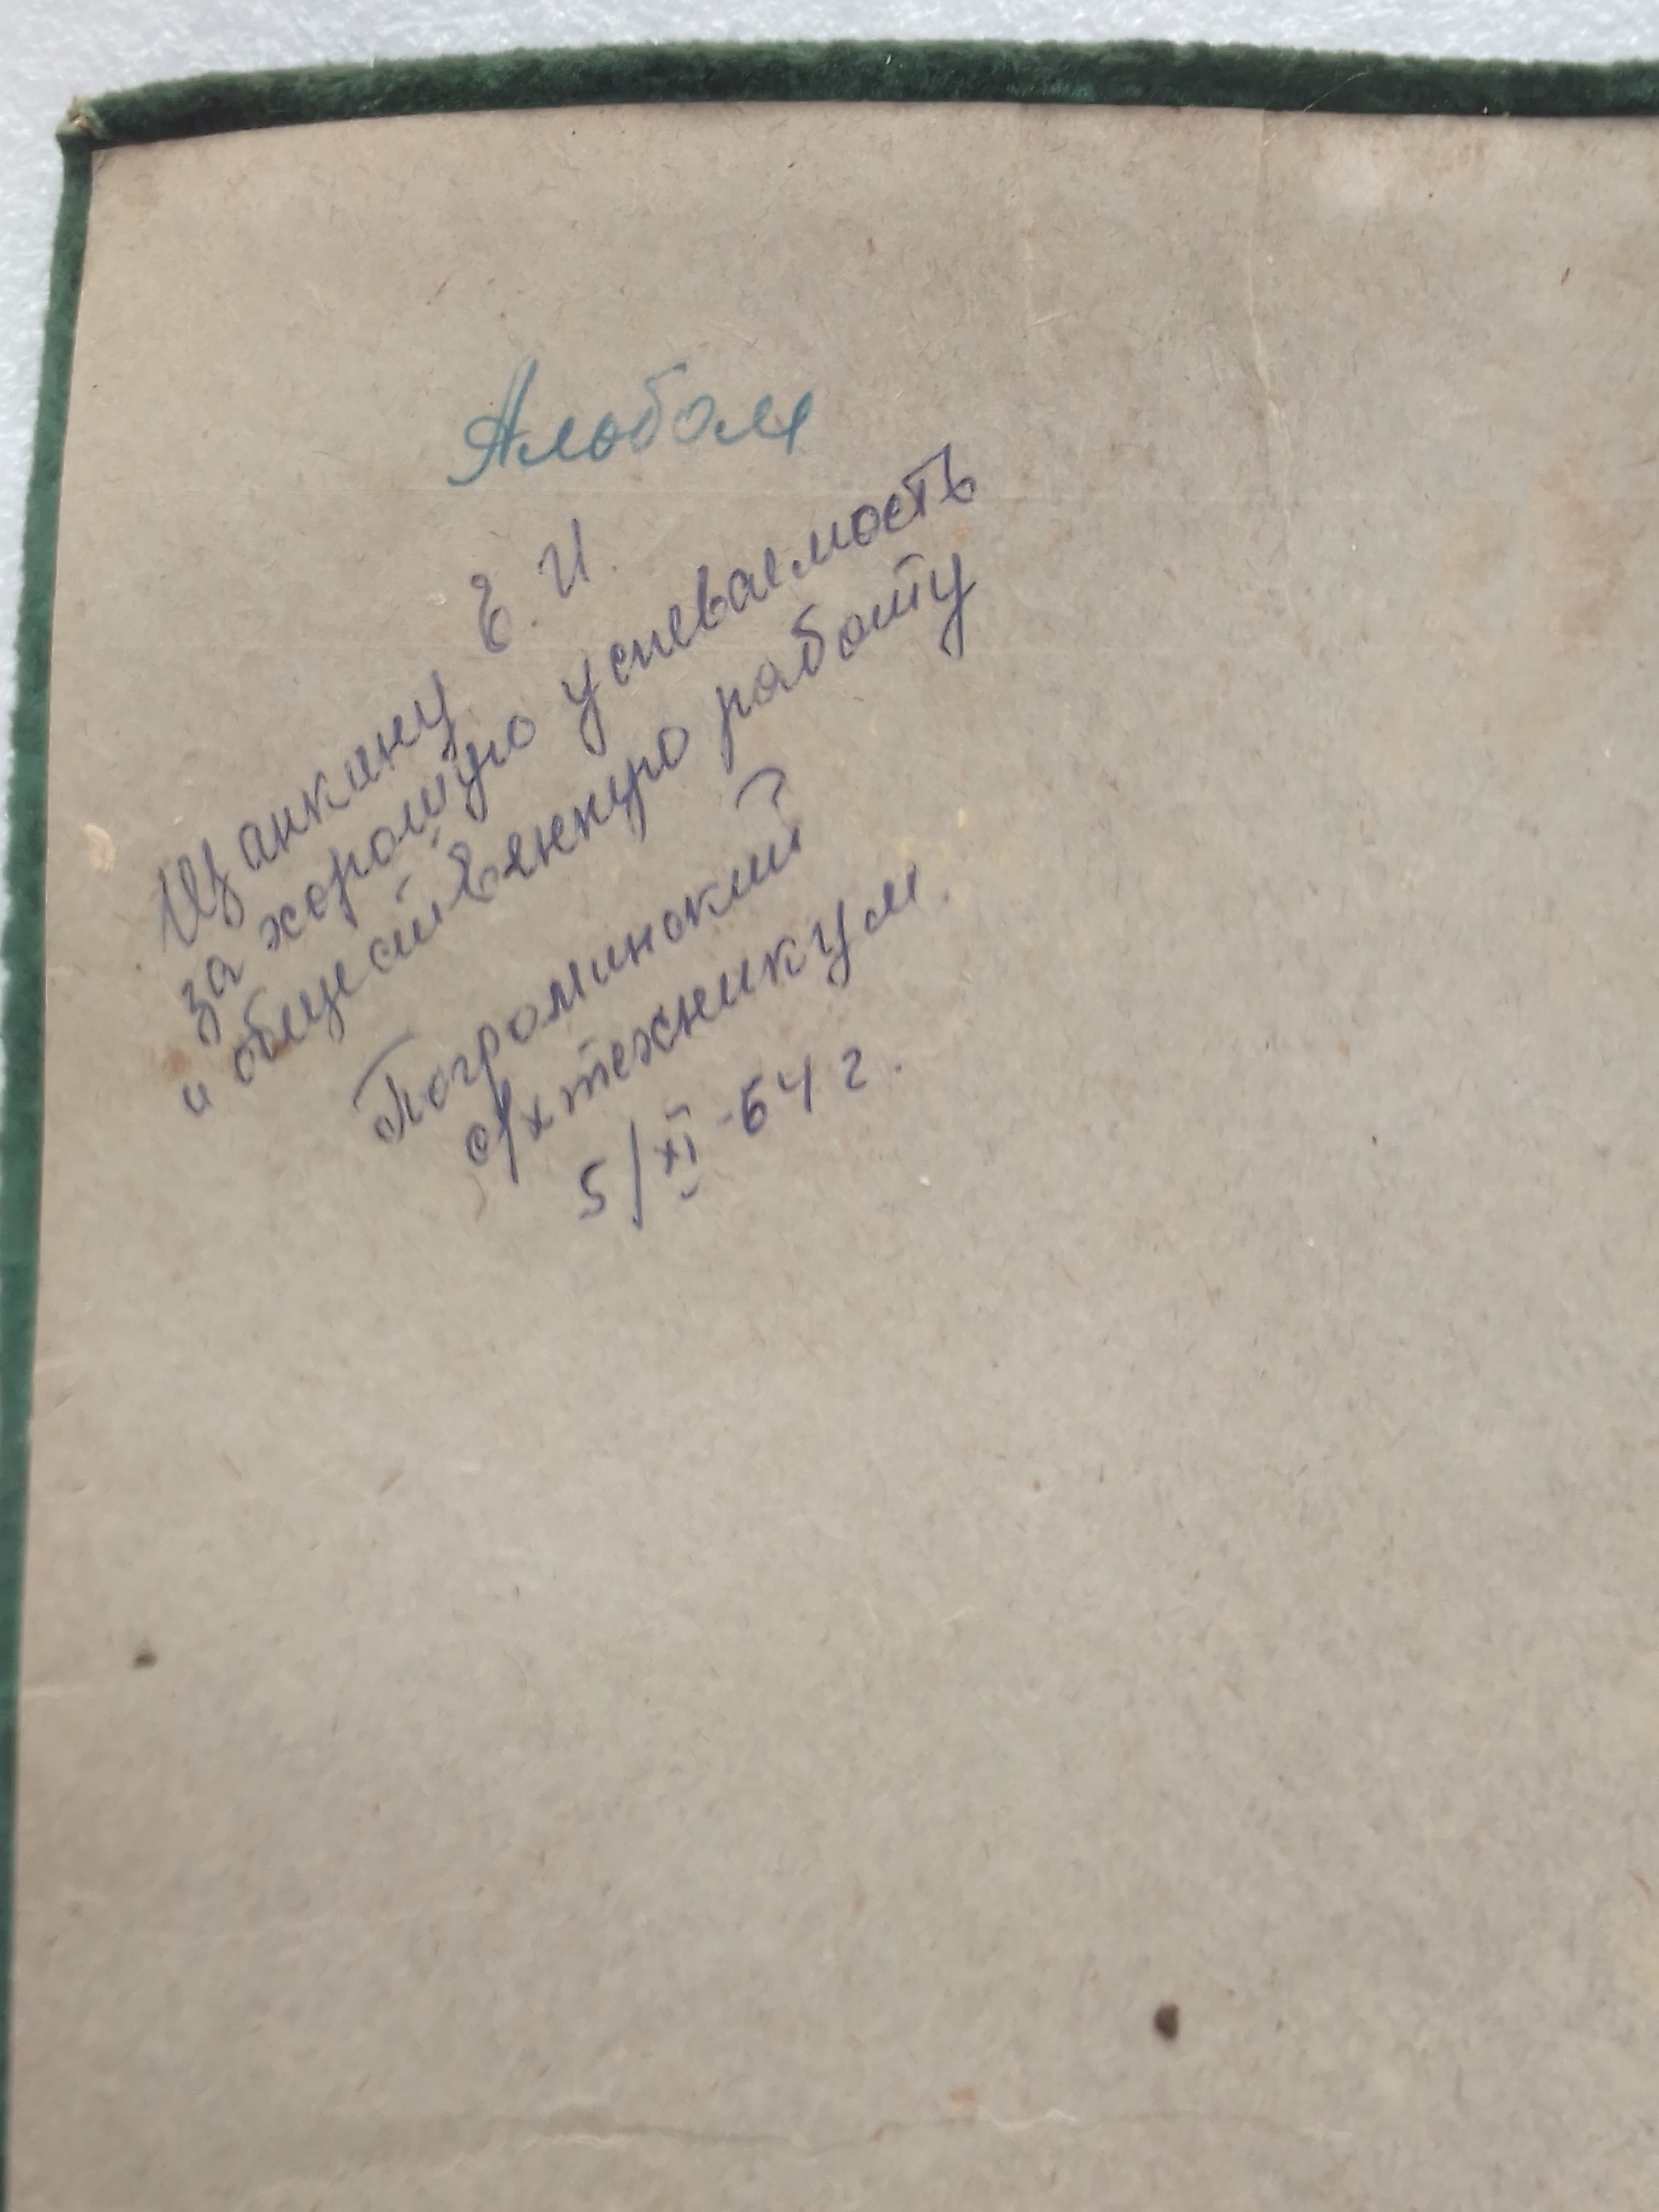 Альбом
Щанкину Е. И.
за хорошую успеваемость
и общественную работу
Погроминский
с/х техникум.
5/XI-64 г.